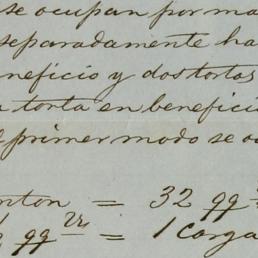 se ocupan por ma
separadamente ha
neficio y dos tortas
a torta en benefici
l primer modo se o
nton = 32 qq
qq = 1 carga